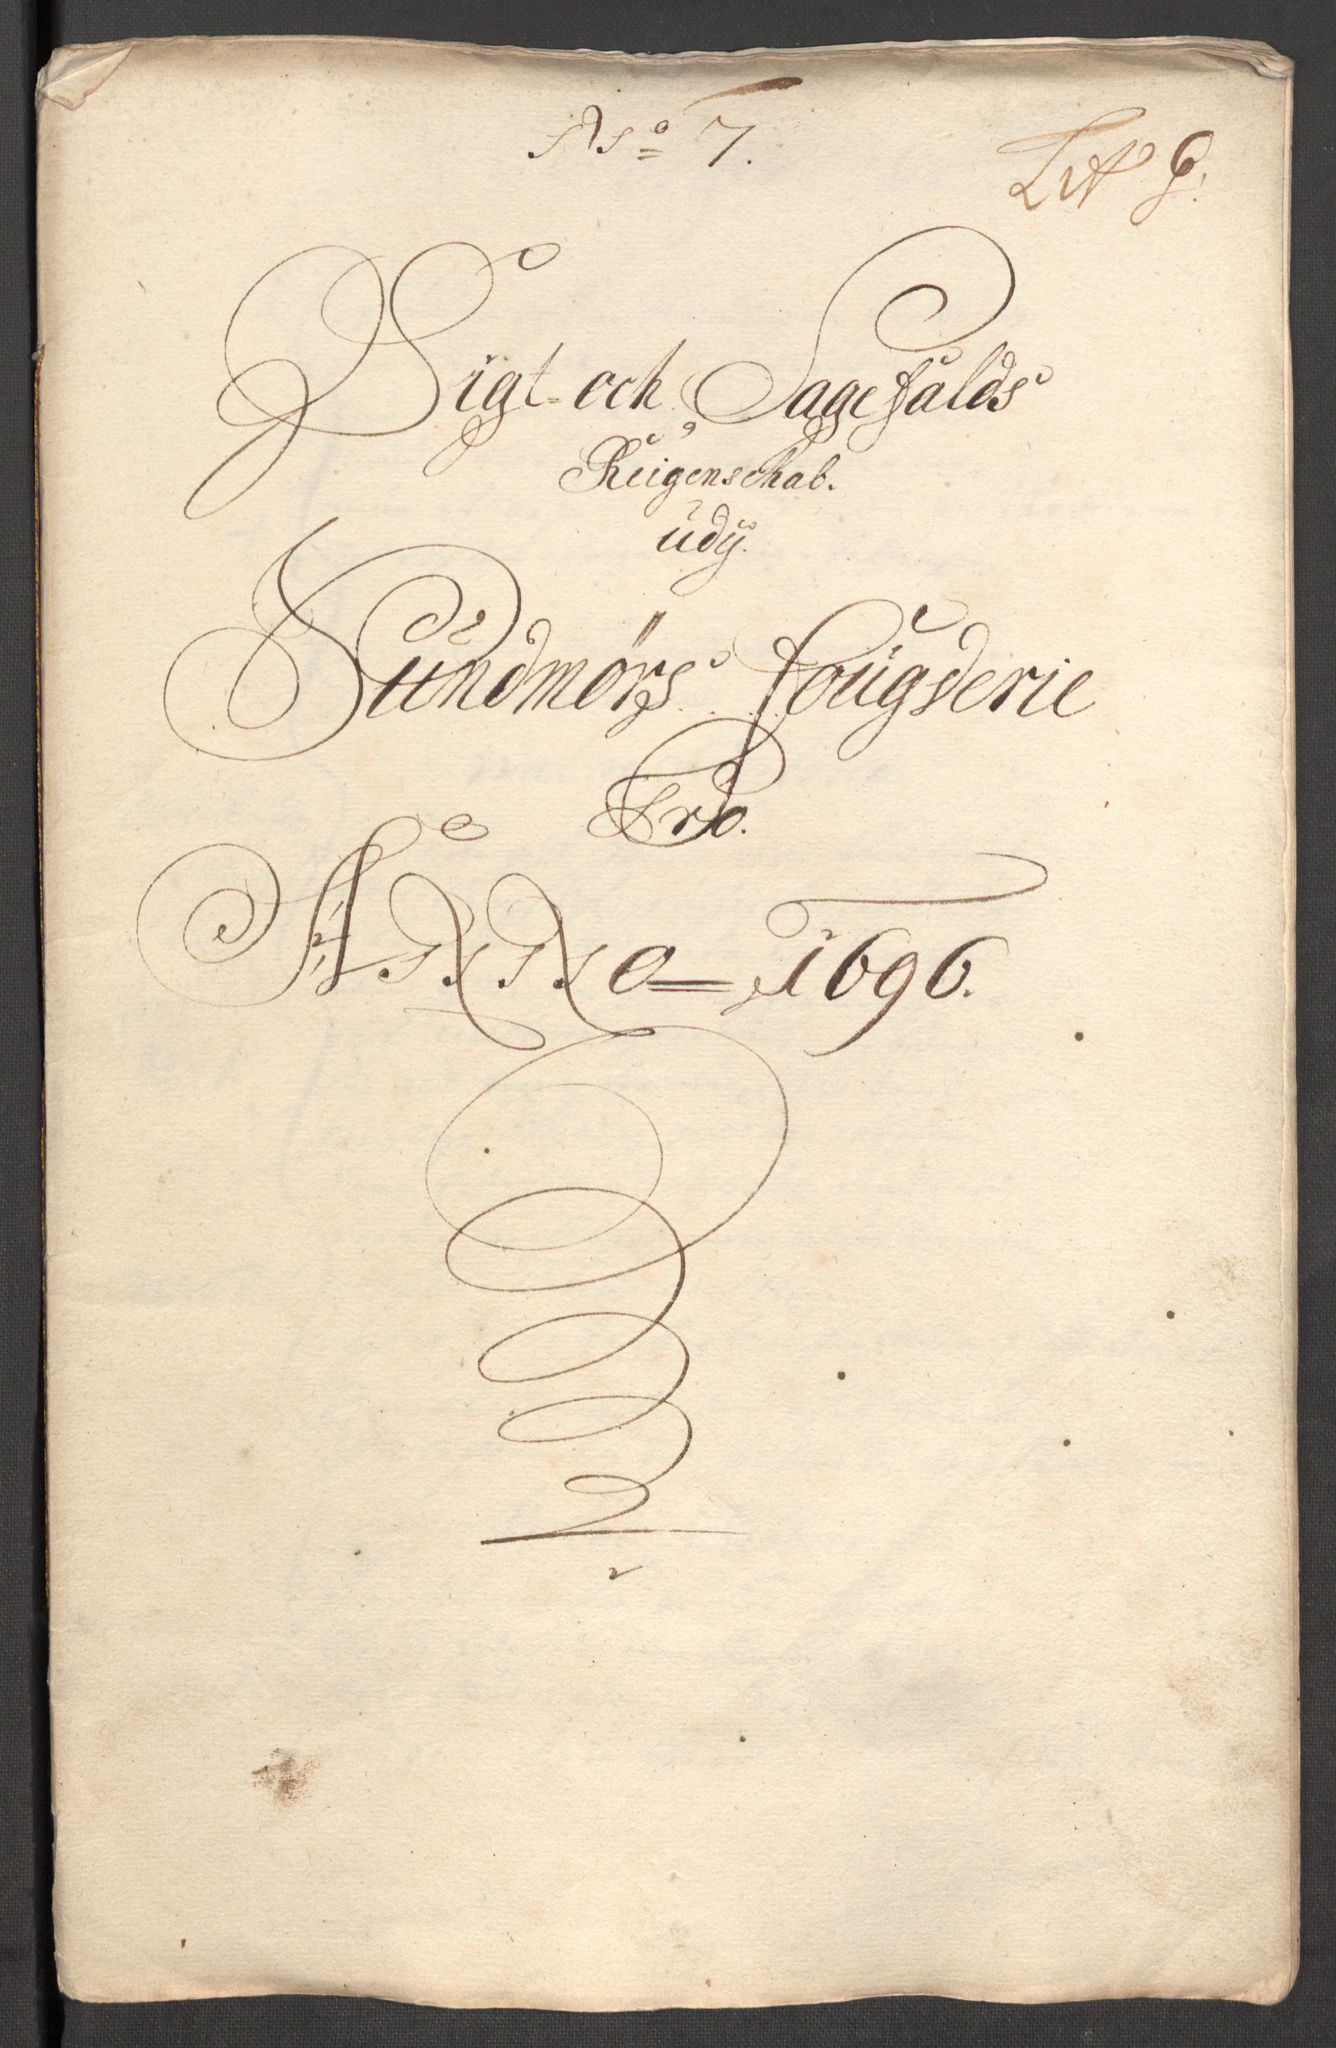 No 7.
Litt G.
Sigt- och Sagefalds
Reigenschab.
udÿ.
Sundmørs fougderie
Pro.
Anno 1696.